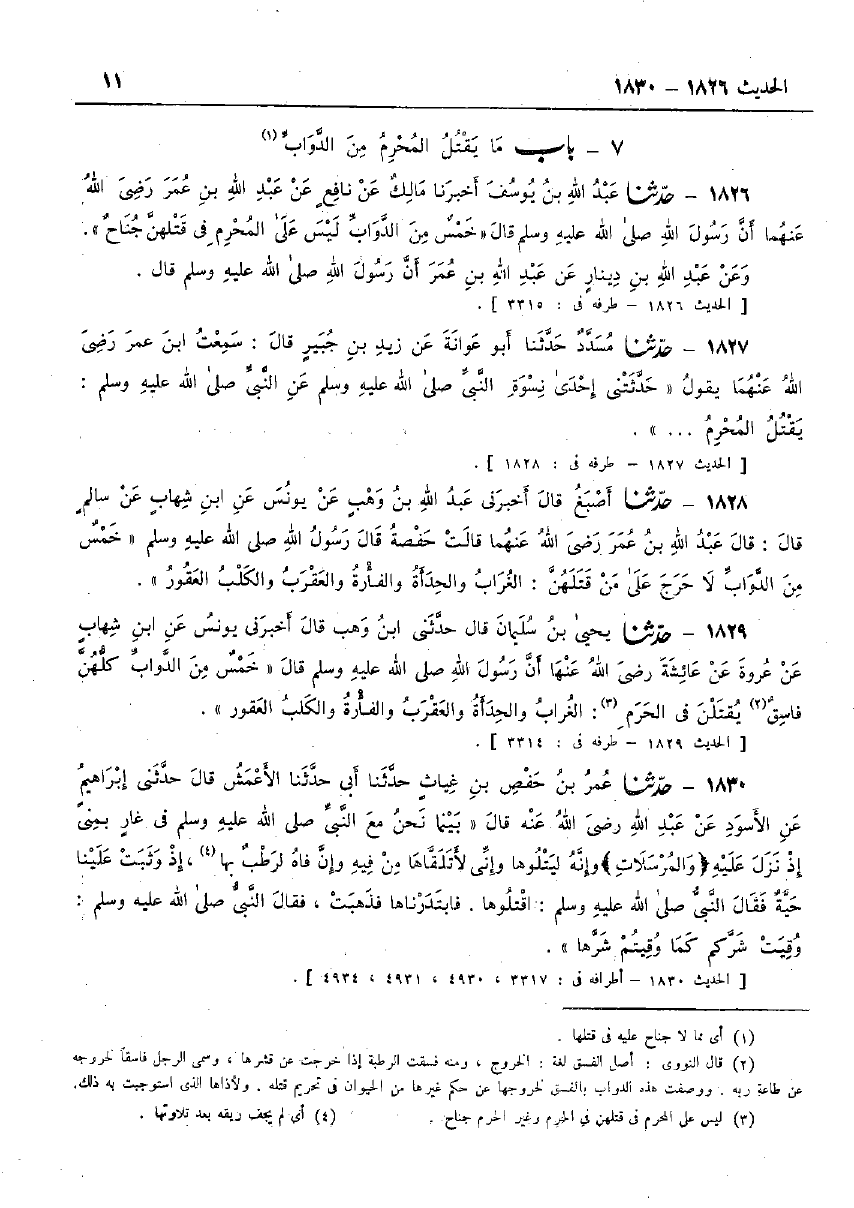 الحديث ١٨٢٦ – ١٨٣٠ ١١
٧ – باب مَا يَقْتُلُ المُحْرِمُ مِنَ الدَّوَابِّ (١)
١٨٢٦ – حدّثنا عَبْدُ اللهِ بنُ يُوسُفَ أخبرَنا مَالِكٌ عَنْ نَافِعٍ عَنْ عَبْدِ اللهِ بنِ عُمَرَ رَضِىَ اللهُ
عَنهُما أنَّ رَسُولَ اللهِ صلىٰ الله عليهِ وسلم قالَ « خَمْسٌ مِنَ الدَّوَابِّ لَيْسَ عَلَىٰ المُحْرِمِ فى قَتْلِهِنَّ جُنَاحٌ » .
وَعَنْ عَبْدِ اللهِ بنِ دِينارٍ عَن عَبْدِ اللهِ بنِ عُمَرَ أنَّ رَسُولَ اللهِ صلىٰ الله عليهِ وسلم قال .
[ الحديث ١٨٢٦ – طرفه فى : ٣٣١٥ ] .
١٨٢٧ – حدّثنا مُسَدَّدٌ حَدَّثَنا أبو عَوانَةَ عَن زيدِ بنِ جُبَيرٍ قالَ : سَمِعْتُ ابنَ عمرَ رَضِىَ
اللهُ عَنْهُمَا يقولُ « حَدَّثَتْنى إحْدَىٰ نِسْوَةِ النَّبىِّ صلىٰ الله عليهِ وسلم عَنِ النَّبىِّ صلىٰ الله عليهِ وسلم :
يَقْتُلُ المُحْرِمُ ... » .
[ الحديث ١٨٢٧ – طرفه فى : ١٨٢٨ ] .
١٨٢٨ – حدّثنا أصْبَغُ قالَ أخبرَنى عَبدُ اللهِ بنُ وَهْبٍ عَنْ يونُسَ عَنِ ابنِ شِهابٍ عَنْ سالمٍ
قالَ : قالَ عَبْدُ اللهِ بنُ عُمَرَ رَضِىَ اللهُ عَنهُما قالَتْ حَفْصةُ قَالَ رَسُولُ اللهِ صلى الله عليهِ وسلم « خَمْسٌ
مِنَ الدَّوابِّ لَا حَرَجَ عَلَىٰ مَنْ قَتَلَهُنَّ : الغُرَابُ والحِدَأَةُ والفأرةُ والعَقْرَبُ والكَلْبُ العَقُورُ » .
١٨٢٩ – حدّثنا يحيىٰ بنُ سُلَيمانَ قال حدَّثَنى ابنُ وَهبٍ قالَ أخبرَنى يونسُ عَنِ ابنِ شِهابٍ
عَنْ عُروةَ عَنْ عَائِشَةَ رضىَ اللهُ عَنْهَا أنَّ رَسُولَ اللهِ صلىٰ الله عليهِ وسلم قالَ « خَمْسٌ مِنَ الدَّوابِّ كلُّهُنَّ
فاسِقٌ (٢) يُقتَلْنَ فى الحَرَمِ (٣) : الغُرابُ والحِدَأةُ والعَقْرَبُ والفأرةُ والكَلبُ العَقور » .
[ الحديث ١٨٢٩ – طرفه فى : ٣٣١٤ ] .
١٨٣٠ – حدّثنا عُمرُ بنُ حَفْصِ بنِ غِياثٍ حدَّثَنا أبي حدَّثَنا الأعْمَشُ قالَ حدَّثَنى إبْرَاهيمُ
عَنِ الأسوَدِ عَنْ عَبدِ اللهِ رضىَ اللهُ عَنْه قالَ « بَيْنما نَحنُ معَ النَّبىِّ صلى الله عليهِ وسلم فى غارٍ بمِنىً
إذْ نَزَلَ عَلَيْهِ ﴿ وَالمُرْسَلَاتِ ﴾ وإنَّهُ لَيَتْلُوها وإنِّى لأَتَلَقَّاهَا مِنْ فِيهِ وإنَّ فاهُ لرَطْبٌ بها (٤) ، إذْ وَثَبَتْ عَلَيْنا
حَيَّةٌ فَقَالَ النَّبىُّ صلىٰ اللهُ عليهِ وسلم : اقْتُلُوها . فابتَدَرْناها فذَهبَتْ ، فقالَ النَّبىُّ صلىٰ اللهُ عليه وسلم :
وُقِيَتْ شَرَّكم كَمَا وُقِيتُمْ شَرَّها » .
[ الحديث ١٨٣٠ – أطرافه فى : ٣٣١٧ ، ٤٩٣٠ ، ٤٩٣١ ، ٤٩٣٤ ] .
(١) أى مما لا جناح عليه فى قتلها .
(٢) قال النووى : أصل الفسق لغة : الخروج ، ومنه فسقت الرطبة إذا خرجت عن قشرها ، وسمى الرجل فاسقاً لخروجه
عن طاعة ربه . ووصفت هذه الدواب بالفسق لخروجها عن حكم غيرها من الحيوان فى تحريم قتله . ولأذاها الذى استوجبت به ذلك.
(٣) ليس على المحرم فى قتلهن فى الحرم وغير الحرم جناح . (٤) أى لم يجف ريقه بعد تلاوتها .